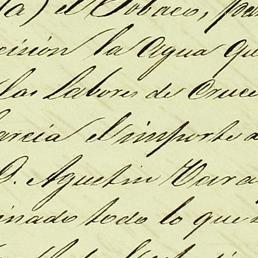 ta) el Tobaco, par
cisión la Agua que
las Labores de Cruce
García el importe a
D. Agustin Vara
inado todo lo que